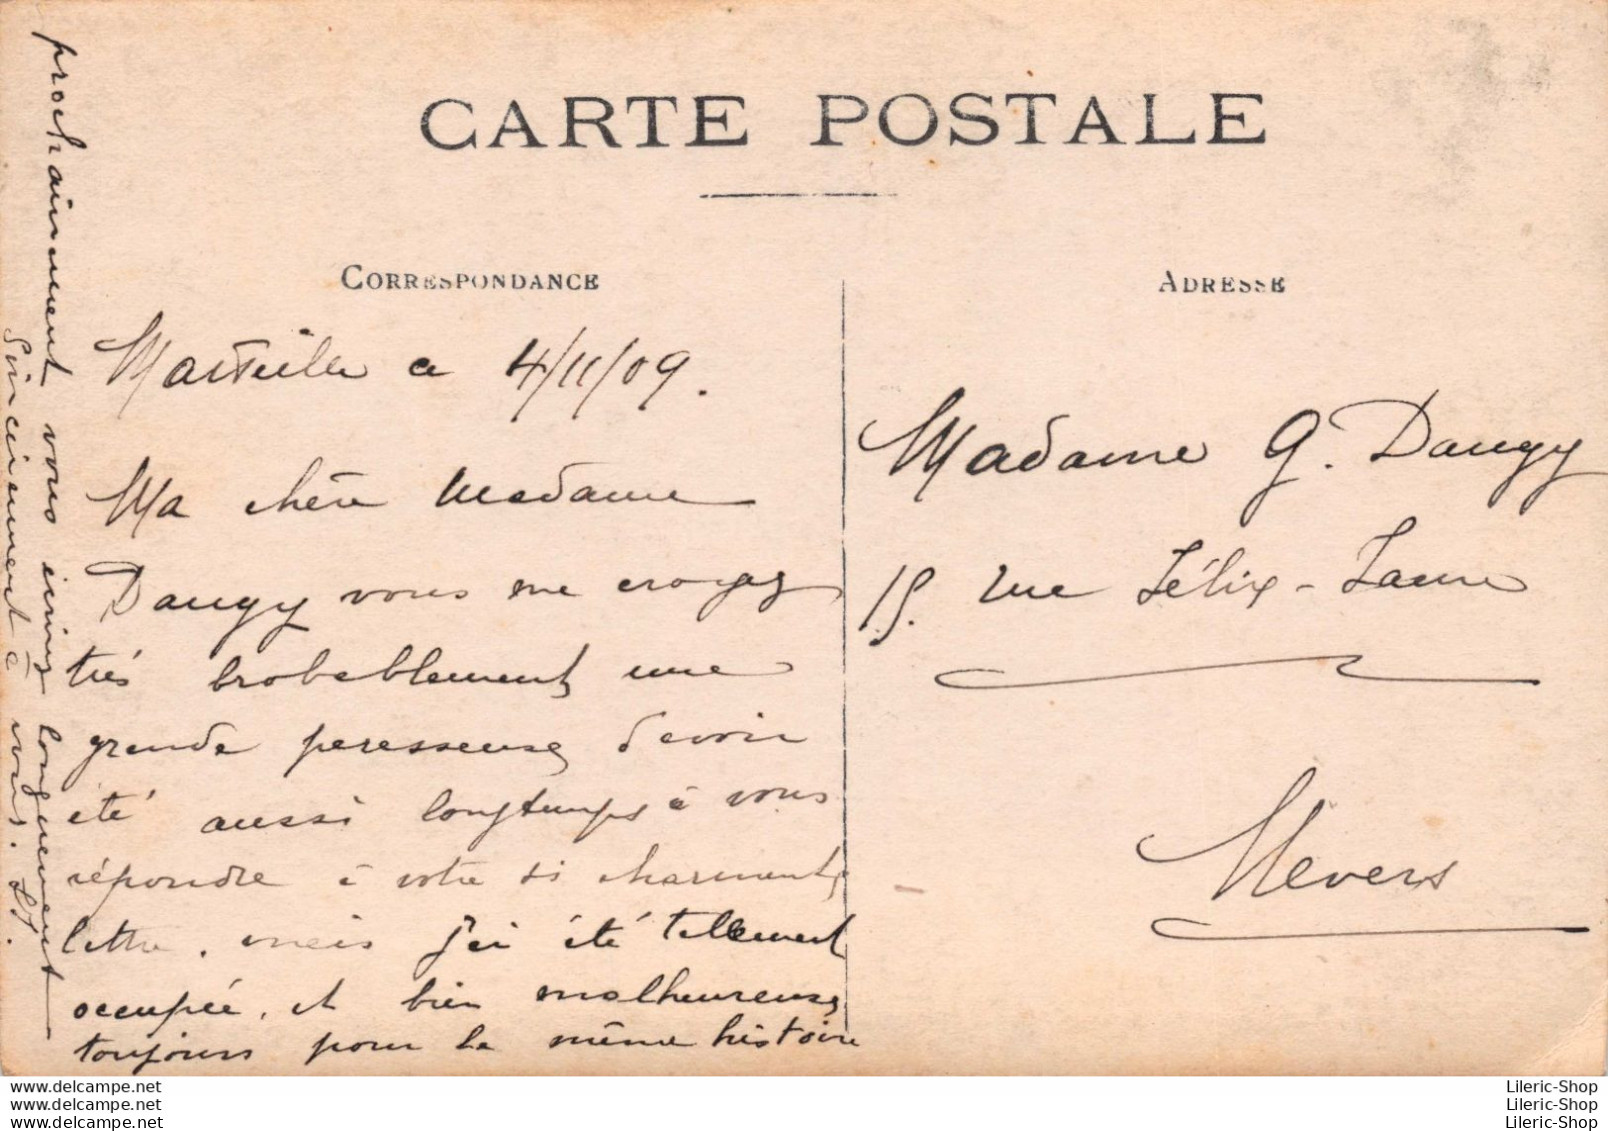 CARTE POSTALE
CORRESPONDANCE
ADRESSE
Marseille a 4/11/09.
Ma chère Madame
Daugy vous me croyez
très probablement une
grande paresseuse d'avoir
été aussi longtemps à vous
répondre à votre si charmante
lettre. mais j'ai été tellement
occupée, et bien malheureuse,
toujours pour la même histoire
prochainement vous longuement
Sincèrement à vous.
Madame G. Daugy
15. rue Félix-Faure
Nevers
www.delcampe.net
www.delcampe.net
www.delcampe.net
Lileric-Shop
Lileric-Shop
Lileric-Shop